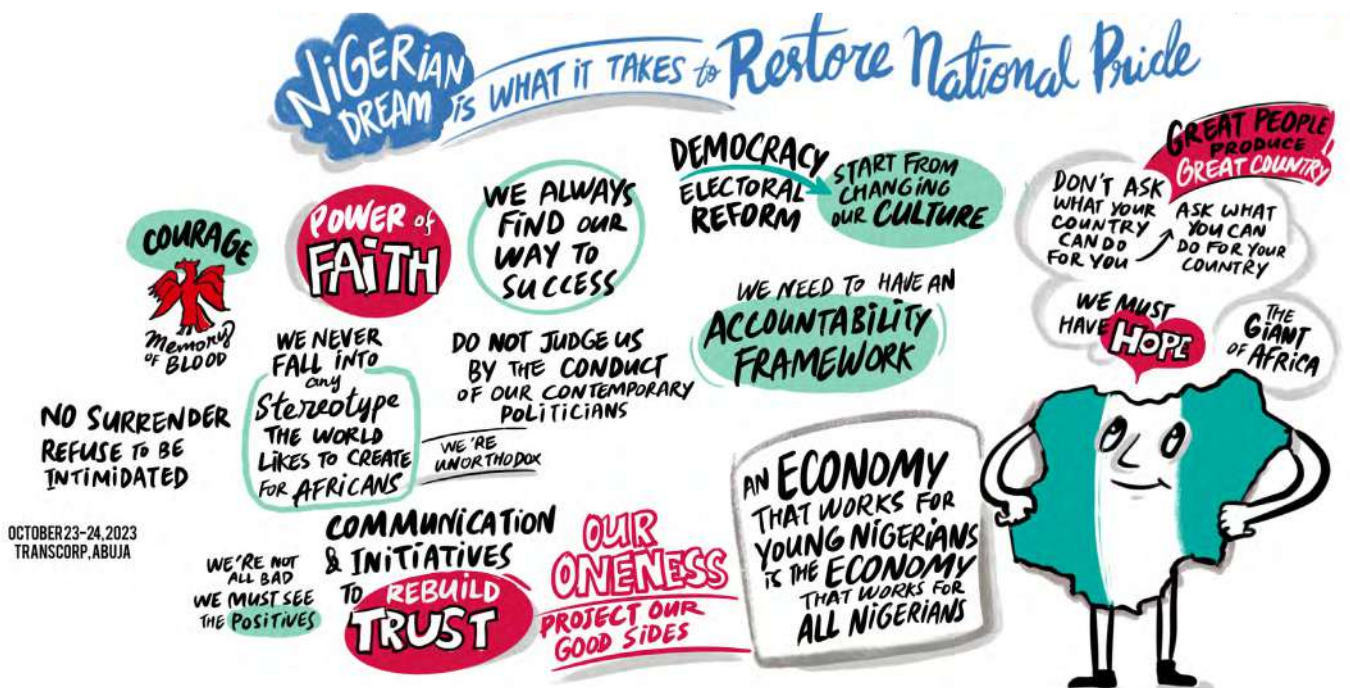 NiGERiAN
DREAM
iS WHAT iT TAKES to Restore National Pride
COURAGE
Memory
OF BLOOD
POWER of
FAiTH
WE ALWAYS
FiND OUR
WAY TO
SUCCESS
DEMOCRACY
ELECTORAL
REFORM
START FROM
CHANGING
OUR CULTURE
GREAT PEOPLE
PRODUCE
GREAT COUNTRY!
DON'T ASK
WHAT YOUR
COUNTRY
CAN DO
FOR YOU
ASK WHAT
YOU CAN
DO FOR YOUR
COUNTRY
WE MUST
HAVE HOPE
THE
GiANT
OF AFRICA
WE NEED TO HAVE AN
ACCOUNTABiLiTY
FRAMEWORK
WE NEVER
FALL INTO
any
Stereotype
THE WORLD
LIKES TO CREATE
FOR AFRICANS
DO NOT JUDGE US
BY THE CONDUCT
OF OUR CONTEMPORARY
POLiTiCiANS
WE'RE
UNORTHODOX
NO SURRENDER
REFUSE TO BE
INTIMIDATED
OCTOBER 23-24, 2023
TRANSCORP, ABUJA
WE'RE NOT
ALL BAD
WE MUST SEE
THE POSiTiVES
COMMUNICATION
& INITIATIVES
TO REBUILD
TRUST
OUR
ONENESS
PROJECT OUR
GOOD SiDES
AN ECONOMY
THAT WORKS FOR
YOUNG NIGERIANS
iS THE ECONOMY
THAT WORKS FOR
ALL NIGERIANS